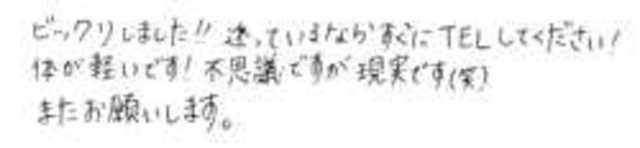 ビックリしました!! 迷っているならすぐにTELしてください!
体が軽いです! 不思議ですが現実です(笑)
またお願いします。